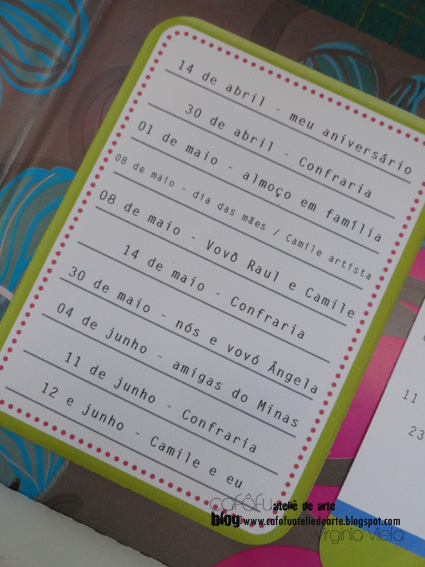 14 de abril - meu aniversário
30 de abril - Confraria
01 de maio - almoço em família
08 de maio - dia das mães / Camile artista
08 de maio - Vovô Raul e Camile
14 de maio - Confraria
30 de maio - nós e vovó Ângela
04 de junho - amigas do Minas
11 de junho - Confraria
12 e junho - Camile e eu
11
23
cafôfu ateliê de arte
blog: www.cafofuateliedearte.blogspot.com
Virgínia Vilela